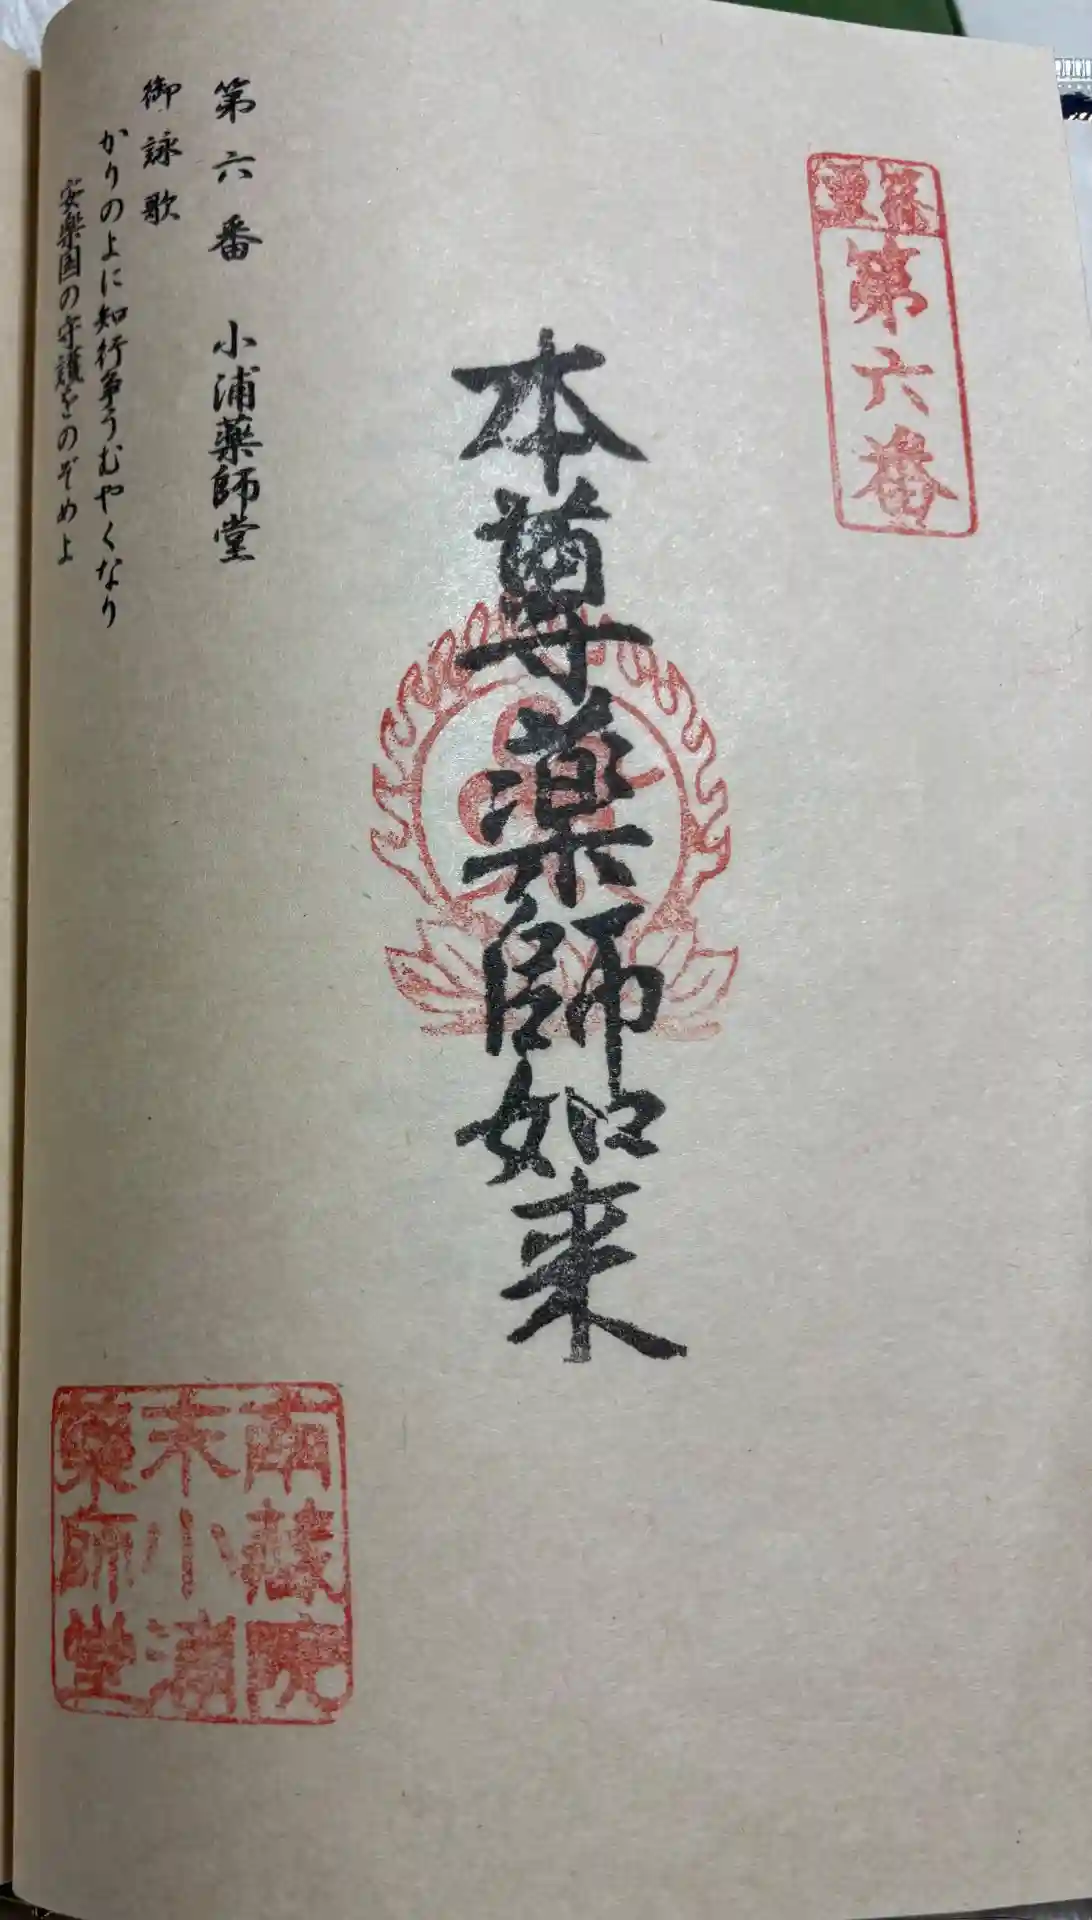 篠栗霊場
第六番
本尊薬師如来
第六番 小浦薬師堂
御詠歌
かりのよに知行争うむやくなり
安楽国の守護をのぞめよ
南蔵院
末小浦
薬師堂